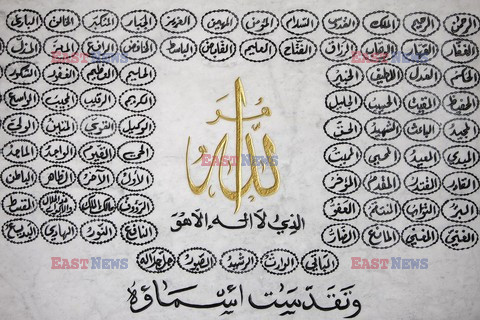 الرحمن الرحيم الملك القدوس السلام المؤمن المهيمن العزيز الجبار المتكبر الخالق البارئ
الغفار القهار الوهاب الرزاق الفتاح العليم القابض الباسط الخافض الرافع المعز المذل
الحكم العدل اللطيف الخبير الحليم العظيم الغفور الشكور
الحفيظ المقيت الحسيب الجليل الكريم الرقيب المجيب الواسع
المجيد الباعث الشهيد الحق الوكيل القوي المتين الولي
المبدئ المعيد المحيي المميت الحي القيوم الواجد الماجد
القادر المقتدر المقدم المؤخر الأول الآخر الظاهر الباطن
البر التواب العفو الرؤوف مالك الملك ذو الجلال والإكرام المقسط
الغني المغني المانع الضار النافع النور الهادي البديع
هو
الله
الذي لا اله الا هو
الباقي الوارث الرشيد الصبور جل جلاله
وتقدست أسماؤه
EAST NEWS
EAST NEWS
EAST NEWS
EAST NEWS
EAST NEWS